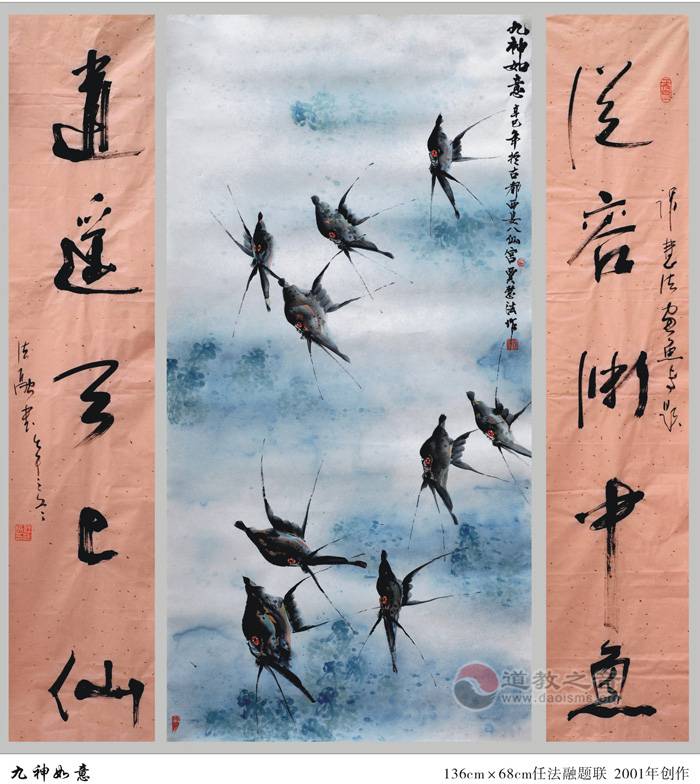 從容渊中魚
九神如意
辛巳年於古都西安八仙宫贾慧法作
逍遥天上仙
法融书
道教之音
www.daoisms.com
九神如意
136cm×68cm任法融题联 2001年创作